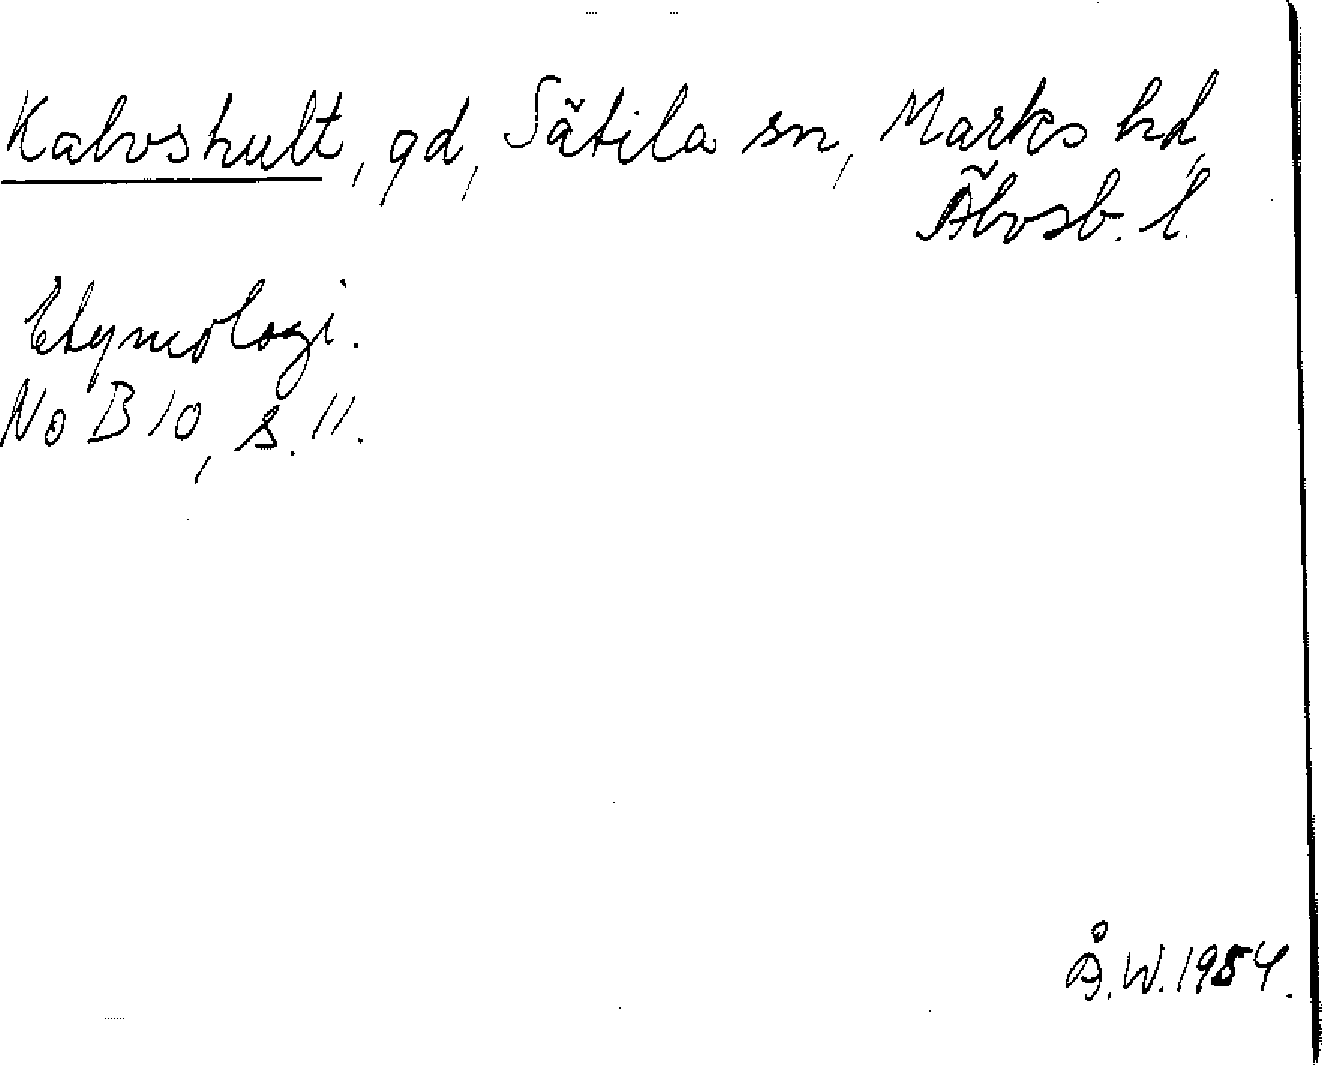 Kalvshult, gd, Sätila sn, Marks hd,
Älvsb. l.
Etymologi.
NoB 10, s. 11.
Å.W. 1954.